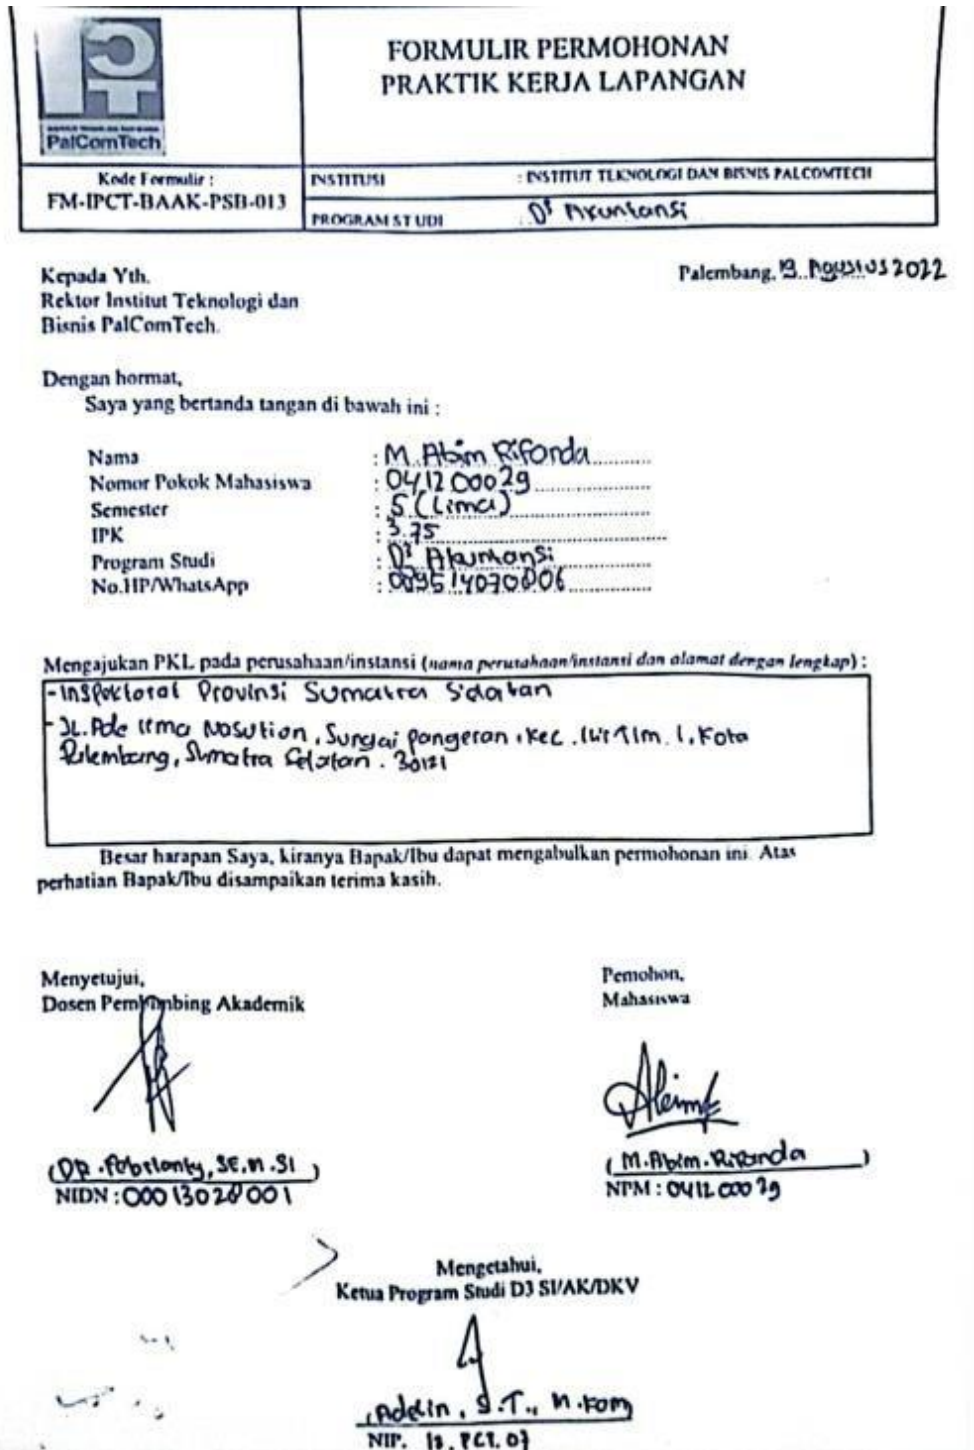 FORMULIR PERMOHONAN
PRAKTIK KERJA LAPANGAN
PalComTech
Kode Formulir :
FM-IPCT-BAAK-PSB-013
INSTITUSI : INSTITUT TEKNOLOGI DAN BISNIS PALCOMTECH
PROGRAM STUDI : D3 Akuntansi
Palembang, 19 Agustus 2022
Kepada Yth.
Rektor Institut Teknologi dan
Bisnis PalComTech.
Dengan hormat,
Saya yang bertanda tangan di bawah ini :
Nama : M. Abim Rifonda
Nomor Pokok Mahasiswa : 041200029
Semester : 5 (Lima)
IPK : 3.75
Program Studi : D3 Akuntansi
No.HP/WhatsApp :
Mengajukan PKL pada perusahaan/instansi (nama perusahaan/instansi dan alamat dengan lengkap) :
- Inspektorat Provinsi Sumatra Selatan
- JL. Ade Irma Nasution, Sungai Pangeran, Kec. Ilir Tim. I, Kota
Palembang, Sumatra Selatan. 30121
Besar harapan Saya, kiranya Bapak/Ibu dapat mengabulkan permohonan ini. Atas
perhatian Bapak/Ibu disampaikan terima kasih.
Menyetujui,
Dosen Pembimbing Akademik
Pemohon,
Mahasiswa
(DR. Febrianty, SE, M.SI)
NIDN :
(M. Abim. Rifonda)
NPM : 041200029
Mengetahui,
Ketua Program Studi D3 SI/AK/DKV
(Adelin, S.T., M.Kom
NIP. PCT. 07